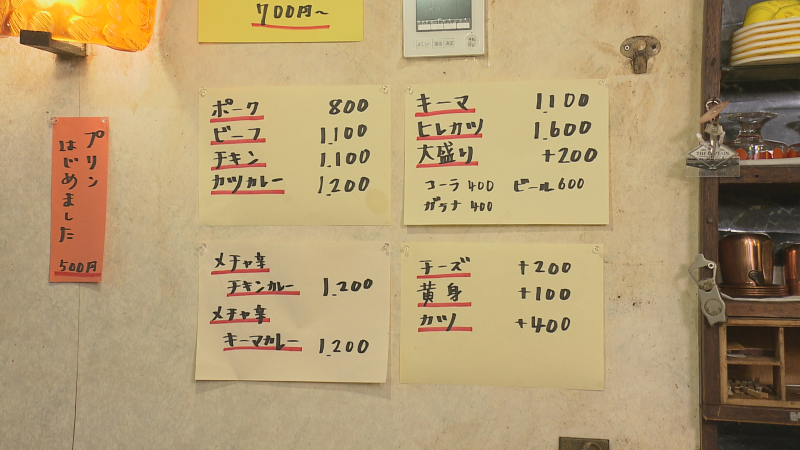 700円〜
プリン
はじめました
500円
ポーク 800
ビーフ 1,100
チキン 1,100
カツカレー 1,200
キーマ 1,100
ヒレカツ 1,600
大盛り +200
コーラ 400 ビール 600
ガラナ 400
メチャ辛
チキンカレー 1,200
メチャ辛
キーマカレー 1,200
チーズ +200
黄身 +100
カツ +400